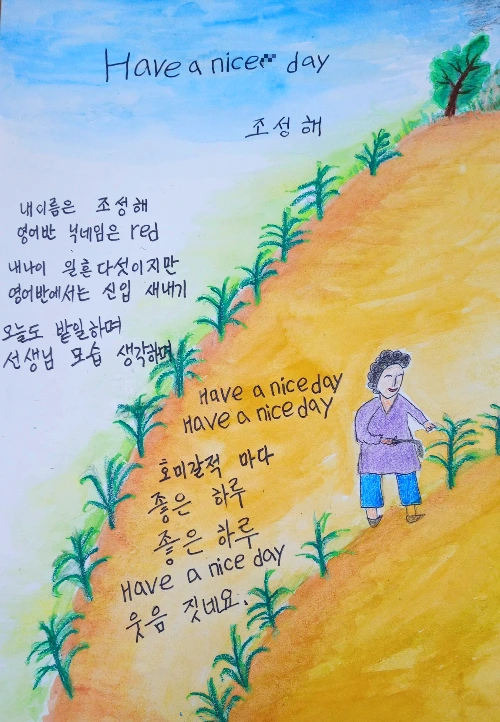 Have a nice day
조성해
내이름은 조성해
영어반 닉네임은 red
내나이 일흔다섯이지만
영어반에서는 신입 새내기
오늘도 밭일하며
선생님 모습 생각하며
Have a nice day
Have a nice day
호미갈적 마다
좋은 하루
좋은 하루
Have a nice day
웃음 짓네요.